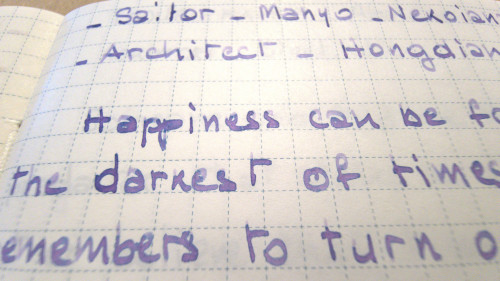 - Sailor - Manyo - Nekoian
- Architect - Hongdian
Happiness can be fo
the darkest of times
emembers to turn o